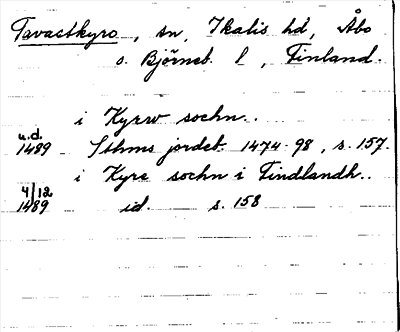 Tavastkyro, sn, Ikalis hd, Åbo
o. Björneb. l, Finland.
i Kyrw sochn..
u.d.
1489 Sthms jordeb. 1474-98, s. 157.
i Kyre sochn i Findlandh..
4/12
1489 id. s. 158